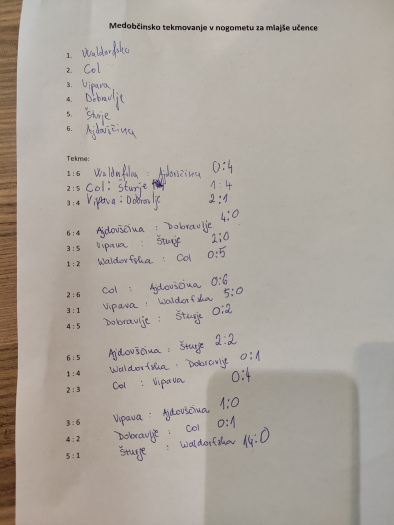 Medobčinsko tekmovanje v nogometu za mlajše učence
1. Waldorfska
2. Col
3. Vipava
4. Dobravlje
5. Šturje
6. Ajdovščina
Tekme:
1:6 Waldorfska : Ajdovščina 0:4
2:5 Col : Šturje 1:4
3:4 Vipava : Dobravlje 2:1
6:4 Ajdovščina : Dobravlje 4:0
3:5 Vipava : Šturje 2:0
1:2 Waldorfska : Col 0:5
2:6 Col : Ajdovščina 0:6
3:1 Vipava : Waldorfska 5:0
4:5 Dobravlje : Šturje 0:2
6:5 Ajdovščina : Šturje 2:2
1:4 Waldorfska : Dobravlje 0:1
2:3 Col : Vipava 0:4
3:6 Vipava : Ajdovščina 1:0
4:2 Dobravlje : Col 0:1
5:1 Šturje : Waldorfska 14:0